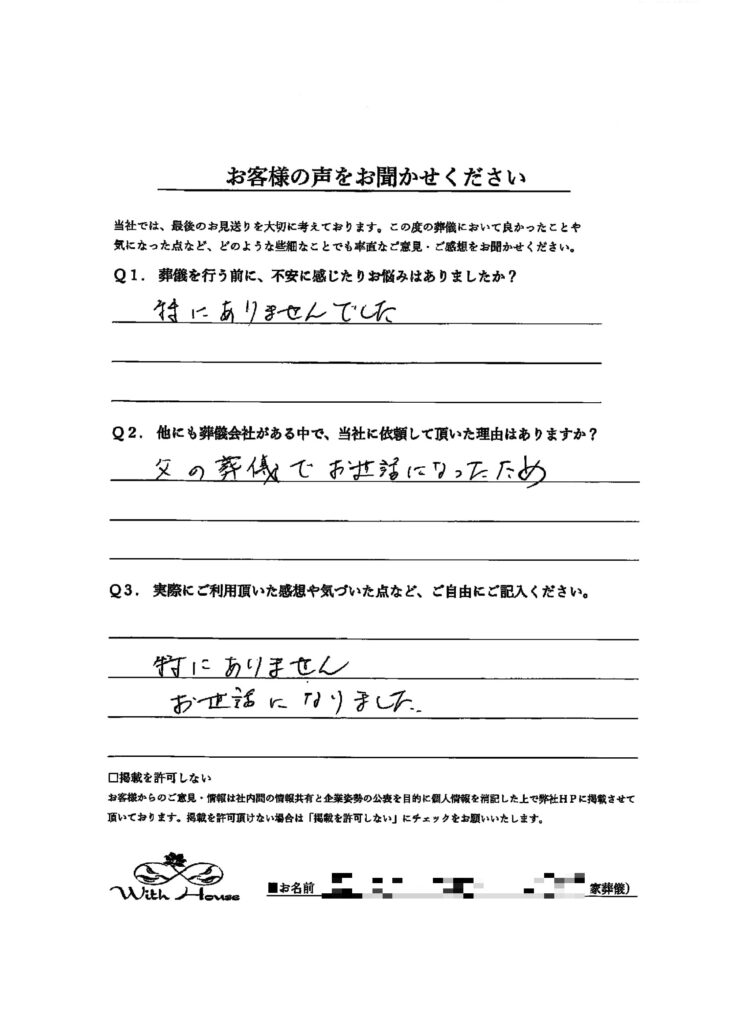 お客様の声をお聞かせください
当社では、最後のお見送りを大切に考えております。この度の葬儀において良かったことや
気になった点など、どのような些細なことでも率直なご意見・ご感想をお聞かせください。
Q1. 葬儀を行う前に、不安に感じたりお悩みはありましたか？
特にありませんでした
Q2. 他にも葬儀会社がある中で、当社に依頼して頂いた理由はありますか？
父の葬儀でお世話になったため
Q3. 実際にご利用頂いた感想や気づいた点など、ご自由にご記入ください。
特にありません
お世話になりました。
□掲載を許可しない
お客様からのご意見・情報は社内間の情報共有と企業姿勢の公表を目的に個人情報を消記した上で弊社HPに掲載させて
頂いております。掲載を許可頂けない場合は「掲載を許可しない」にチェックをお願いいたします。
With House
■お名前 家葬儀）